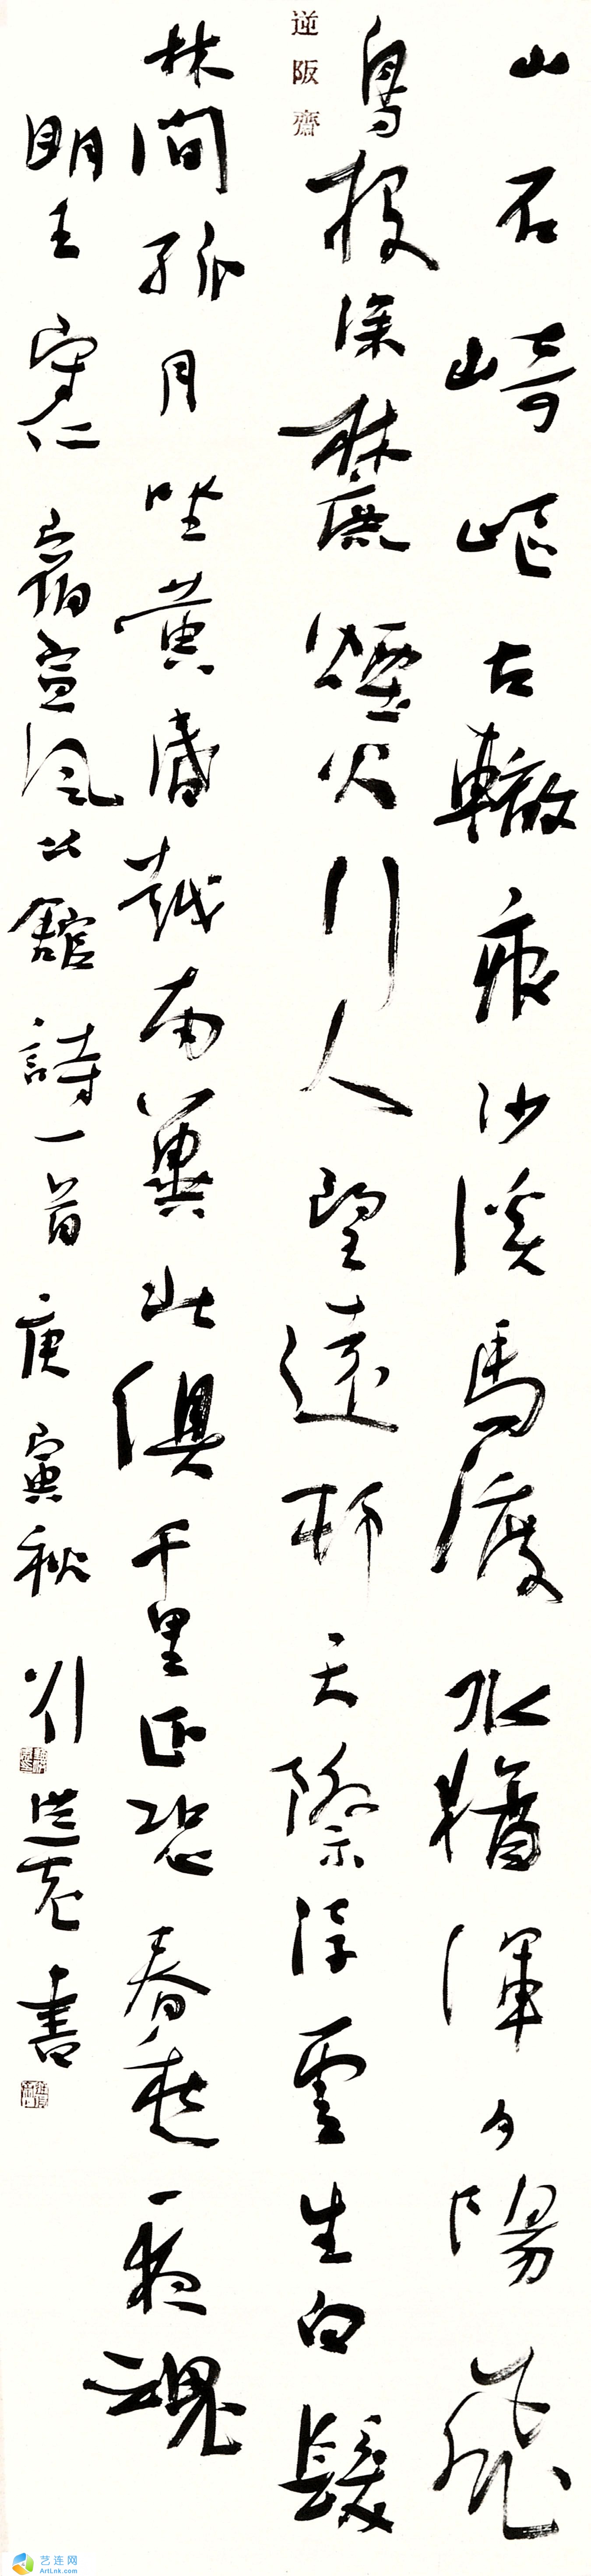 山石崎嶇古轍痕沙溪馬渡水猶渾夕陽飛
逆阪齋
鳥投深麓煙火行人望遠村天際浮雲生白髮
林間孤月坐黃昏越南冀北俱千里正恐春愁一夜魂
明王守仁宿宣風公館詩一首庚寅秋劉洪彪書
艺连网
ArtLnk.com